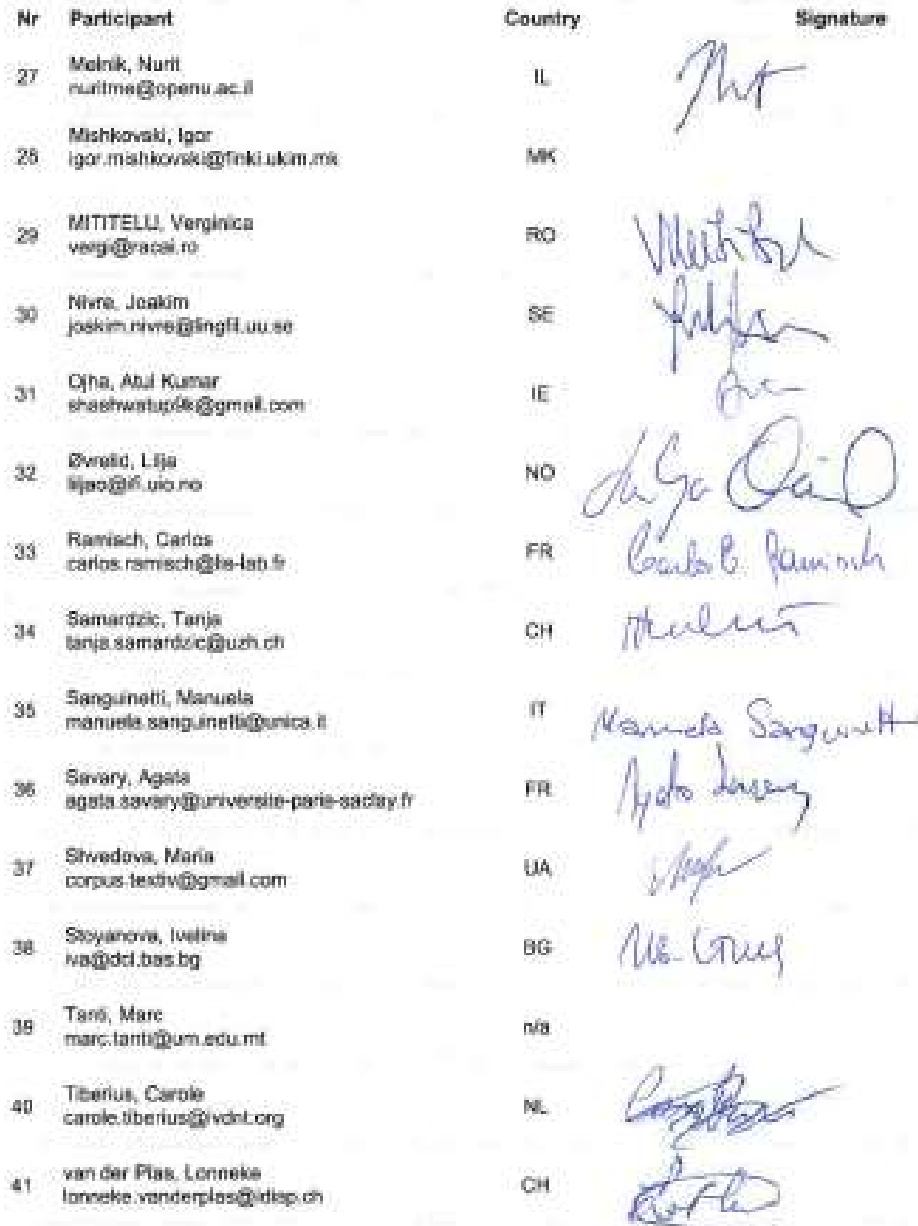 Nr Participant Country Signature
27 Melnik, Nurit IL
nuritme@openu.ac.il
28 Mishkovski, Igor MK
igor.mishkovski@finki.ukim.mk
29 MITITELU, Verginica RO
vergi@racai.ro
30 Nivre, Joakim SE
joakim.nivre@lingfil.uu.se
31 Ojha, Atul Kumar IE
shashwatup9k@gmail.com
32 Øvrelid, Lilja NO
liljao@ifi.uio.no
33 Ramisch, Carlos FR Carlos Ramisch
carlos.ramisch@lis-lab.fr
34 Samardzic, Tanja CH
tanja.samardzic@uzh.ch
35 Sanguinetti, Manuela IT Manuela Sanguinetti
manuela.sanguinetti@unica.it
36 Savary, Agata FR Agata Savary
agata.savary@universite-paris-saclay.fr
37 Shvedova, Maria UA
corpus.textiv@gmail.com
38 Stoyanova, Ivelina BG
iva@dcl.bas.bg
39 Tanti, Marc n/a
marc.tanti@um.edu.mt
40 Tiberius, Carole NL
carole.tiberius@ivdnt.org
41 van der Plas, Lonneke CH
lonneke.vanderplas@idiap.ch